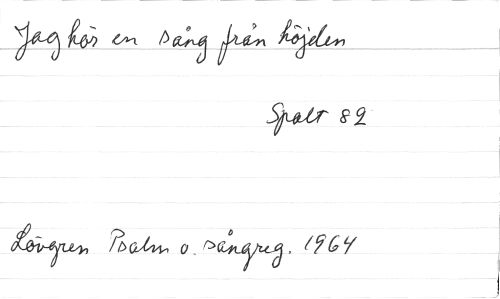 Jag hör en sång från höjden
Spalt 82
Lövgren Psalm o. sångreg. 1964